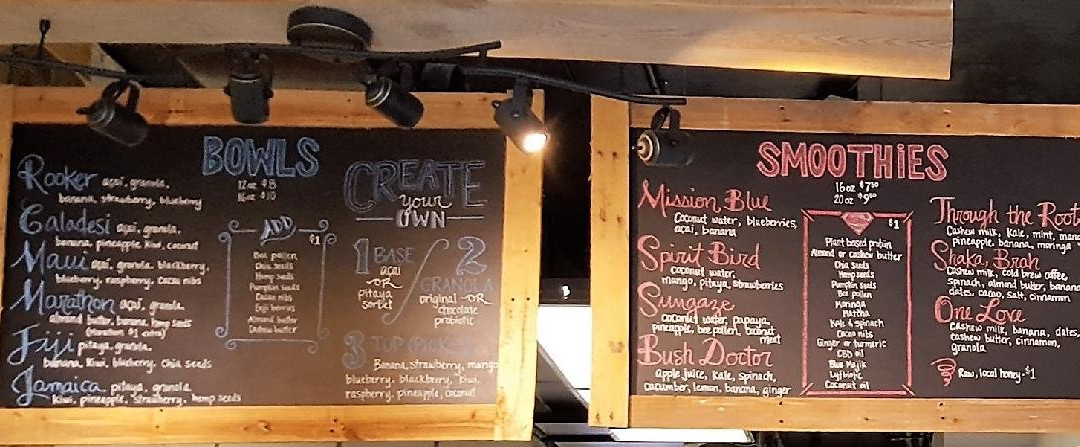 BOWLS
12oz $8
16oz $10
Rooker açaí, granola,
banana, strawberry, blueberry
Caladesi açaí, granola,
banana, pineapple, kiwi, coconut
Maui açaí, granola, blackberry,
blueberry, raspberry, cacao nibs
Marathon açaí, granola,
almond butter, banana, hemp seeds
Fiji pitaya, granola,
banana, kiwi, blueberry, chia seeds
Jamaica pitaya, granola,
kiwi, pineapple, strawberry, hemp seeds
ADD
$1
Bee pollen
Chia seeds
Hemp seeds
Pumpkin seeds
Cacao nibs
Goji berries
Almond butter
Cashew butter
CREATE
your
OWN
1 BASE
açaí
-OR-
pitaya
sorbet
2
GRANOLA
original -OR-
chocolate
probiotic
3 TOP
Banana, strawberry, mango
blueberry, blackberry, kiwi,
raspberry, pineapple, coconut
SMOOTHIES
16oz $7.50
20oz
Mission Blue
Coconut water, blueberries,
açaí, banana
Spirit Bird
coconut water,
mango, pitaya, strawberries
Sungaze
coconut water, papaya,
pineapple, bee pollen, coconut
meat
Bush Doctor
apple juice, kale, spinach,
cucumber, lemon, banana, ginger
$1
Plant based protein
Almond or cashew butter
Chia seeds
Hemp seeds
Pumpkin seeds
Bee pollen
Moringa
Matcha
Kale & spinach
Cacao nibs
Ginger or turmeric
CBD oil
Blue Majik
Coconut oil
Through the Roots
Cashew milk, kale, mint,
pineapple, banana, moringa
Shaka Brah
Cashew milk, cold brew coffee,
spinach, almond butter, banana
dates, cacao, salt, cinnamon
One Love
Cashew milk, banana, dates,
cashew butter, cinnamon,
granola
Raw, local honey-$1